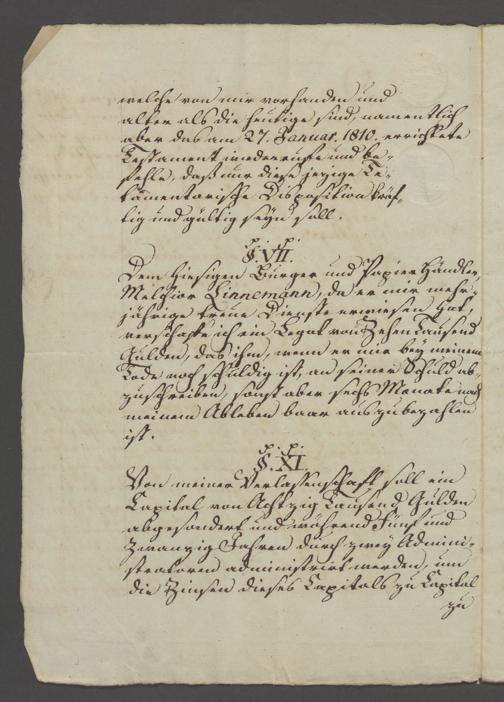 welche von mir vorhanden und
älter als die heutige sind, namentlich
aber das am 27. Januar. 1810. errichtete
Testament wiederrufe und be-
fehle, daß nur diese jezige Te-
stamentarische Disposition kräf-
tig und gültig seyn soll.
p. p.
§. VII.
Dem hiesigen Burger und Papier Händler,
Melchior Linnemann, da er mir mehr-
jährige treue Dienste erwiesen hat,
verschaffe ich ein Legat von Zehen Tausend
Gulden, das ihm, wenn er mir bey meinem
Tode noch schuldig ist, an seiner Schuld ab-
zuschreiben, sonst aber sechs Monate nach
meinem Ableben baar auszubezahlen
ist.
p. p.
§. XI.
Von meiner Verlassenschaft soll ein
Capital von Achtzig Tausend Gulden
abgesondert und während Fünf und
zwanzig Jahren durch zwey Admini-
stratoren administrirt werden, um
die Zinsen dieses Capitals zu Capital
zu